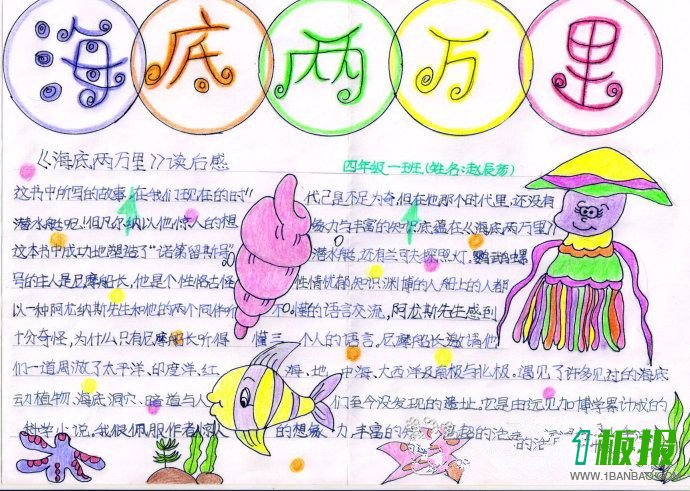 海底两万里
《海底两万里》读后感
四年级一班(姓名:赵辰荡)
这书中所写的故事,在我们现在的时代已是不足为奇但在他那个时代里,还没有
潜水艇呢。但凡尔纳以他惊人的想像力与丰富的知识底蕴在《海底两万里》
这本书中成功地塑造了“诺第留斯号”潜水艇,还有兰可夫探照灯。鹦鹉螺
号的主人是尼摩船长,他是个性格古怪性情忧郁知识渊博的人船上的人都
以一种阿尤纳斯先生和他的两个同伴听不懂的语言交流,阿尤斯先生感到
十分奇怪,为什么只有尼摩船长听得懂三个人的语言,尼摩船长邀请他
们一道周游了太平洋、印度洋、红海、地中海、大西洋及南极与北极。遇见了许多见过的海底
动植物、海底洞穴、暗道与人们至今没发现的遗址,它是由远见加博学累计成的
科学小说。我很佩服作者惊人的想象力,丰富的
1板报
WWW.1BANBAO.COM